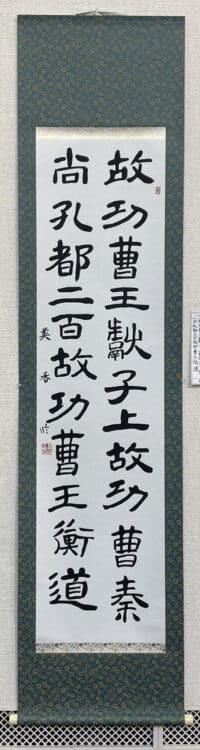 故功曹王獻子上故功曹秦
尚孔都二百故功曹王衡道
美香